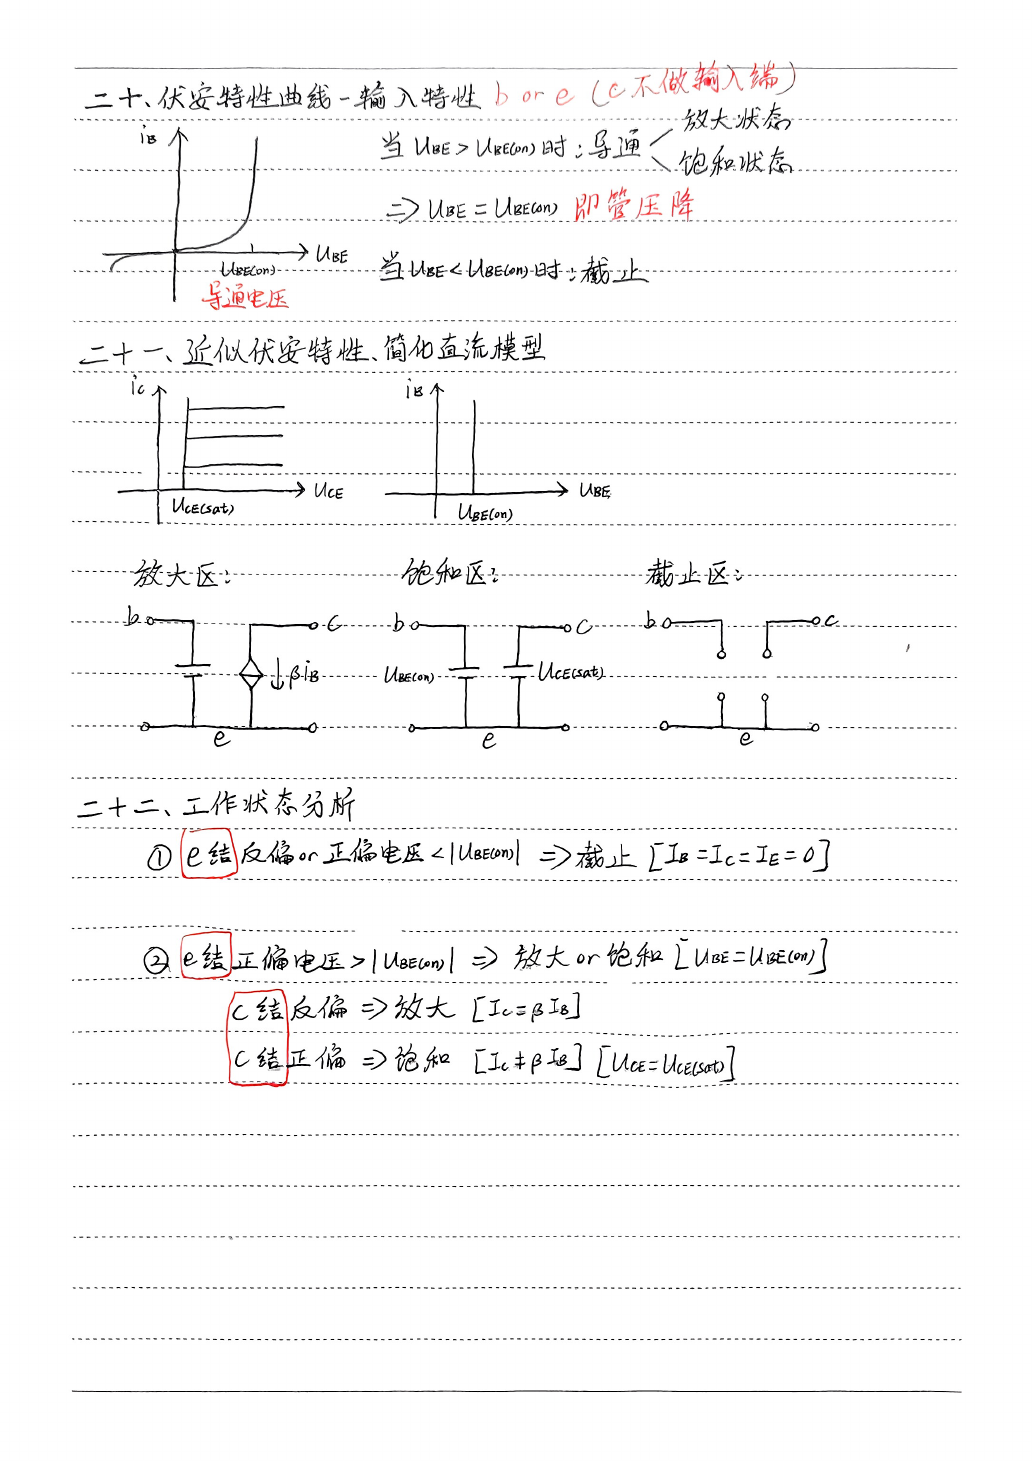 二十、伏安特性曲线-输入特性 b or e (c不做输入端)
iB
当 UBE > UBE(on) 时:导通
放大状态
饱和状态
⇒ UBE = UBE(on) 即管压降
UBE
UBE(on)
导通电压
当 UBE < UBE(on) 时:截止
二十一、近似伏安特性、简化直流模型
ic
UCE
UCE(sat)
iB
UBE
UBE(on)
放大区: 饱和区: 截止区:
b c βiB e
b c UBE(on) UCE(sat) e
b c e
二十二、工作状态分析
① e结 反偏 or 正偏电压 < |UBE(on)| ⇒ 截止 [IB = IC = IE = 0]
② e结 正偏电压 > |UBE(on)| ⇒ 放大 or 饱和 [UBE = UBE(on)]
C结 反偏 ⇒ 放大 [Ic = βIB]
C结 正偏 ⇒ 饱和 [Ic ≠ βIB] [UCE = UCE(sat)]